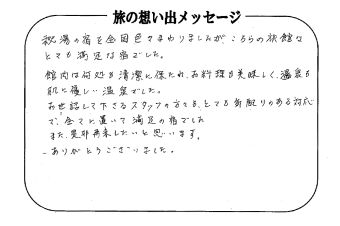 旅の想い出メッセージ
秘湯の宿を全国色々まわりましたがこちらの旅館な
とても満足な宿でした。
館内は何処も清潔に保たれ、お料理も美味しく、温泉も
肌に優しい温泉でした。
お世話して下さるスタッフの方々も、とても気配りのある対応
で、全てに置いて満足の宿でした
また、是非再来したいと思います。
ありがとうございました。